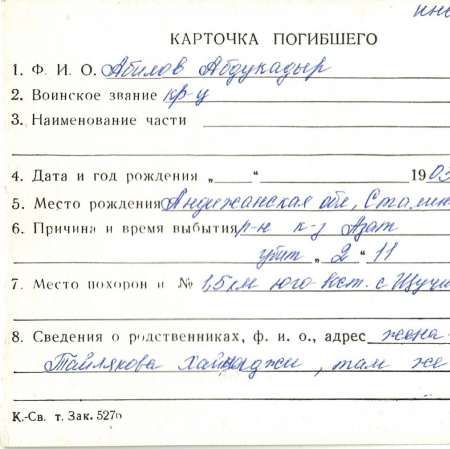 инв
КАРТОЧКА ПОГИБШЕГО
1. Ф. И. О. Абилов Абдукадыр
2. Воинское звание кр-ц
3. Наименование части
4. Дата и год рождения „ “ 1903
5. Место рождения Андижанская обл, Сталин
6. Причина и время выбытия р-н к-з Азат
убит „ 2 “ 11
7. Место похорон и № 1,5 км юго-вост. с Щучи
8. Сведения о родственниках, ф. и. о., адрес жена-
Тайлякова там же
К.-Св. т. Зак. 527б